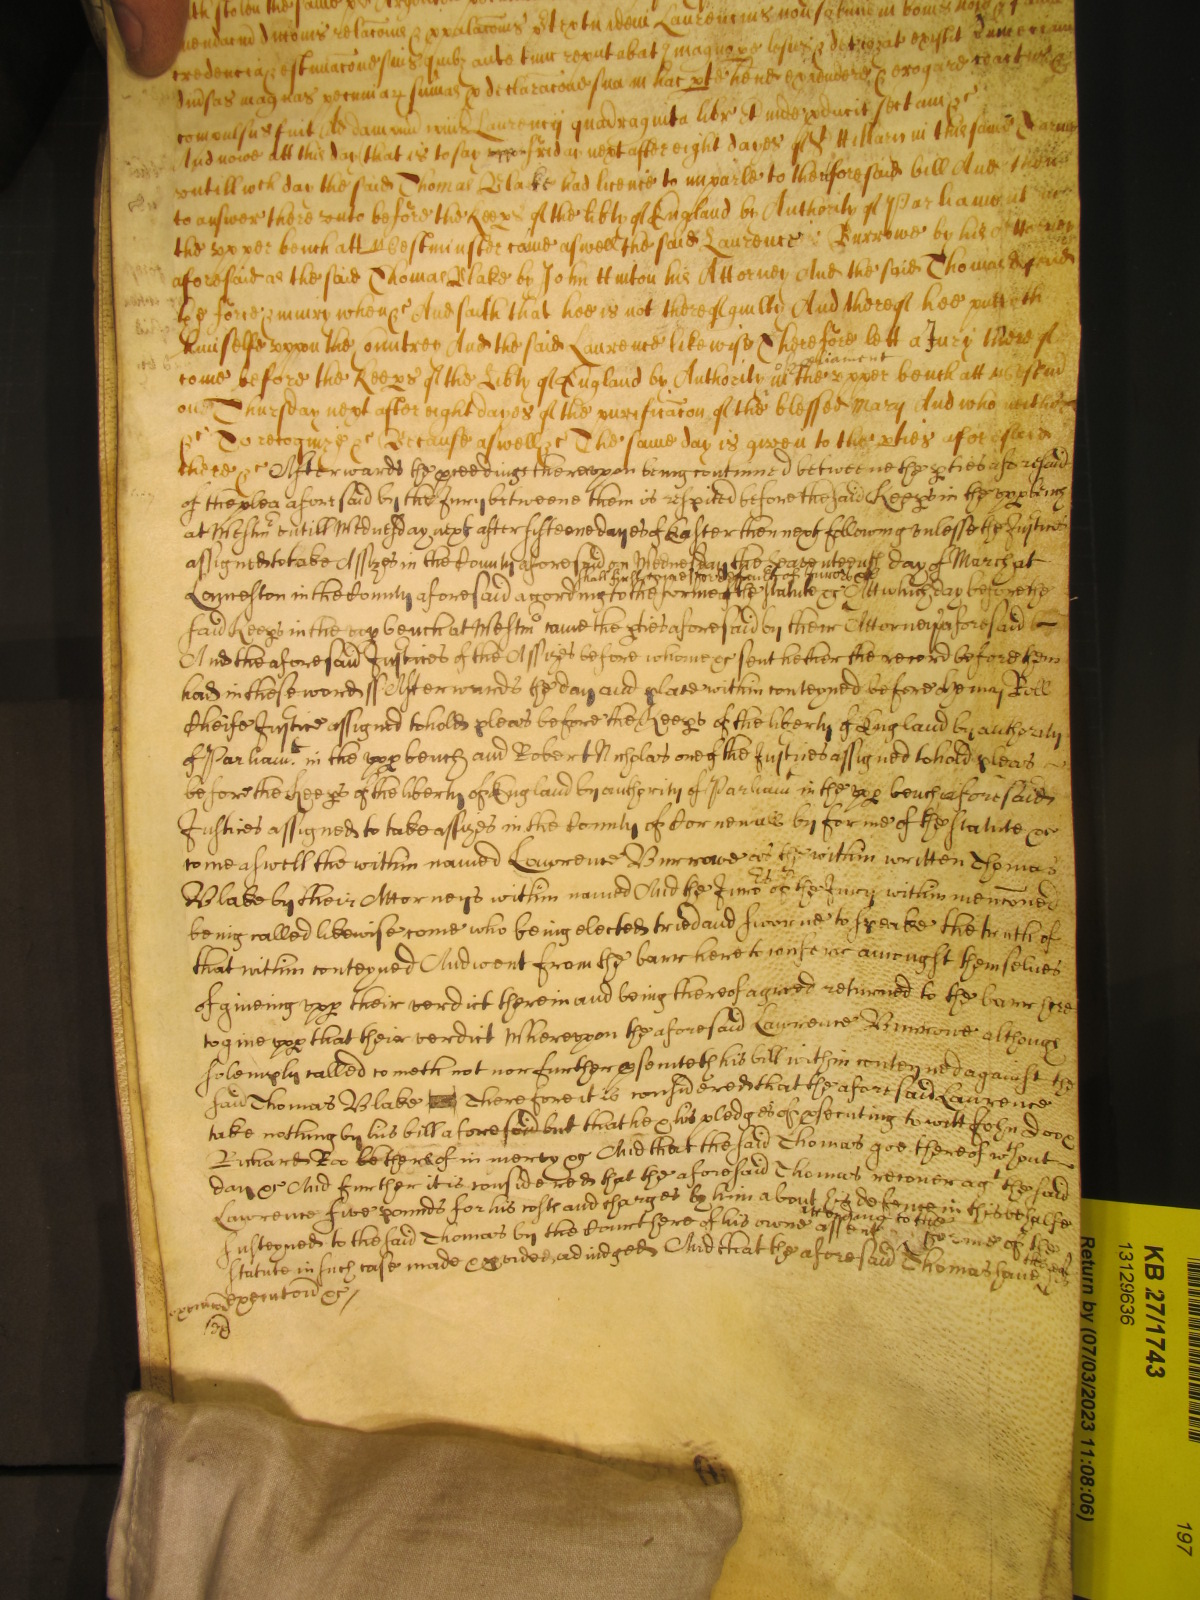 stolen the same
relacoms Laurencius
credencia estimacone suis quibz ante tunc reputabat magnope lesus existit
divsas magnas pecuniar sumas p declaracone sua in hac pte hend expendere & erogare
compulsus fuit Ad dampnum Laurencij quadraginta libr Et inde pducit sectam &c
And nowe att this day that is to say friday next after eight dayes of St Hillary in this same Tearme
untill wch day the said Thomas Blake had licence to imparle to the aforesaid bill And then
to answer there unto before the Keeps of the libty of England by Authority of Parliament
the upper bench att Westminster came aswell the said Laurence Burrowe by his Attorney
aforesaid as the said Thomas Blake by John Hinton his Attorney And the said Thomas
force & iniury when &c And saith that hee is not thereof guilty And thereof hee putteth
himselfe uppon the Countrey And the said Laurence likewise Therefore lett a Jury thereof
come before the Keeps of the Libty of England by Authority of Parliament in the upper bench att
on Thursday next after eight dayes of the purificacon of the blessed Mary And who neither
&c To recognize &c Because aswell &c The same day is given to the pties aforesaid
there &c Afterwards the pceedings thereupon being continued betweene the pties aforesaid
of the plea aforesaid by the Jury betweene them is respited before the said Keeps in the upp bench
at Westmr untill Wednesday next after fifteene dayes of Easter then next following unlesse the Justices
assigned to take Assizes in the County aforesaid on Wednesday the seaventeenth day of March at
Lanceston in the County aforesaid shall first come according to the forme of the statute &c Att which day before the
said Keeps in the upp bench at Westmr came the pties aforesaid by their Attorneys aforesaid
And the aforesaid Justices of the Assizes before whome &c sent hether the record before them
had in these words ss Afterwards the day and place within conteyned before Henry Roll
Cheife Justice assigned to hold pleas before the Keeps of the liberty of England by authority
of Parliamt in the upp bench and Robert Nicholas one of the Justices assigned to hold pleas
before the Keeps of the liberty of England by authority of Parliamt in the upp bench aforesaid
Justices assigned to take assizes in the County of Cornewall by forme of the statute &c
come aswell the within named Lawrence Burrowe as the within written Thomas
Blake by their Attorneys within named And the Jurors of the Jury within menconed
being called likewise come who being elected tried and sworne to speake the truth of
that within conteyned And went from the barr here to conferre amongst themselves
of giveing upp their verdict therein and being thereof agreed returned to the barr here
to give upp that their verdict Whereupon the aforesaid Lawrence Burrowe although
solemply called cometh not nor further psecuteth his bill within conteyned against the
said Thomas Blake Therefore it is considered that the aforesaid Laurence
take nothing by his bill aforesaid but that he & his pledges of psecuting to witt John Doo &
Richard Roo be thereof in mercy &c And that the said Thomas goe thereof wthout
day &c And further it is considered that the aforesaid Thomas recover agt the said
Lawrence five pounds for his costs and charges by him about his defence in this behalfe
susteyned to the said Thomas by the Court here of his owne assent according to the forme of the
statute in such case made & pvided adiudged And that the aforesaid Thomas have
execucon &c
KB 27/1743
13129636
Return by (07/03/2023 11:08:06)
197